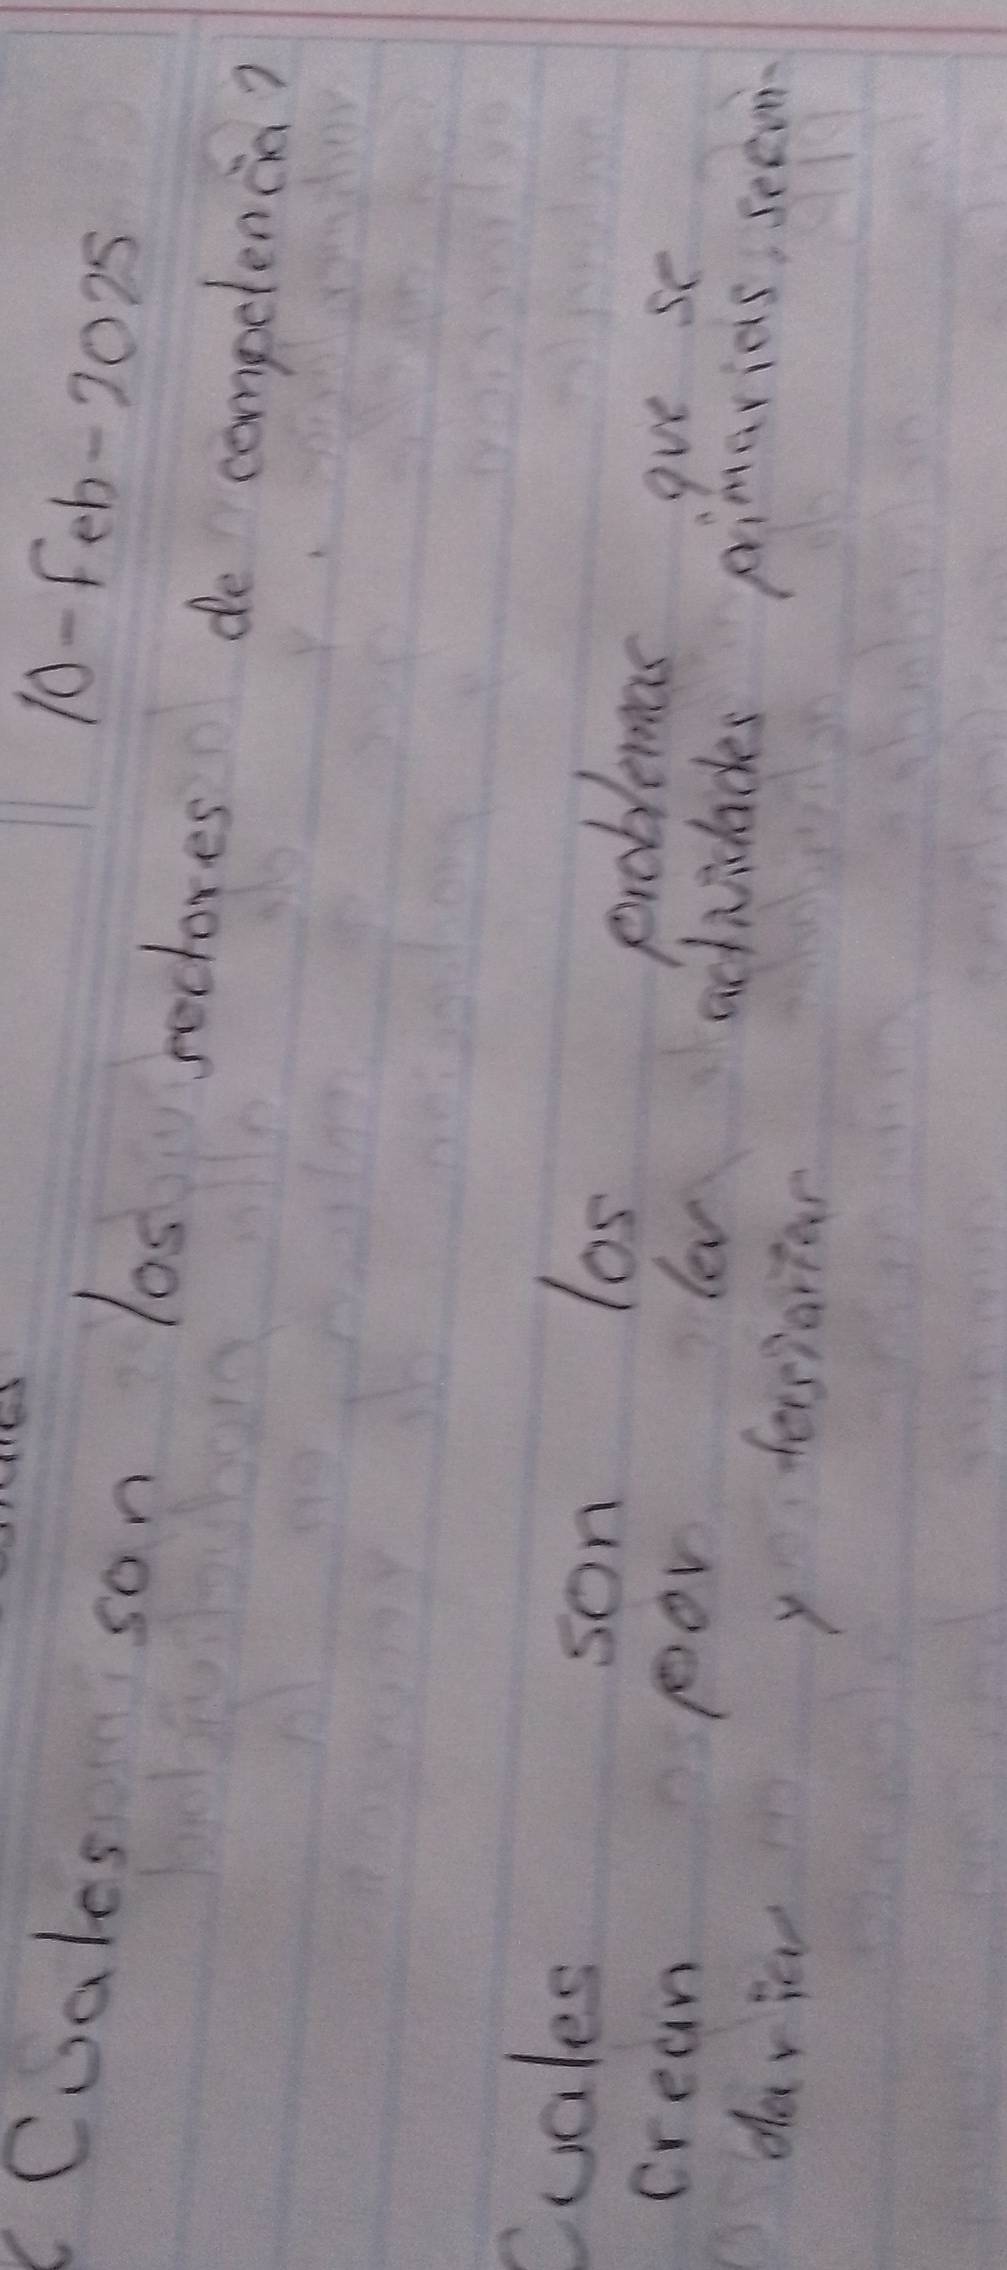 10-Feb-2025
Cuales son los sectores de competencia?
Cuales son los problemas que se
crean por las actividades primarias, secun-
darias y tersiarias